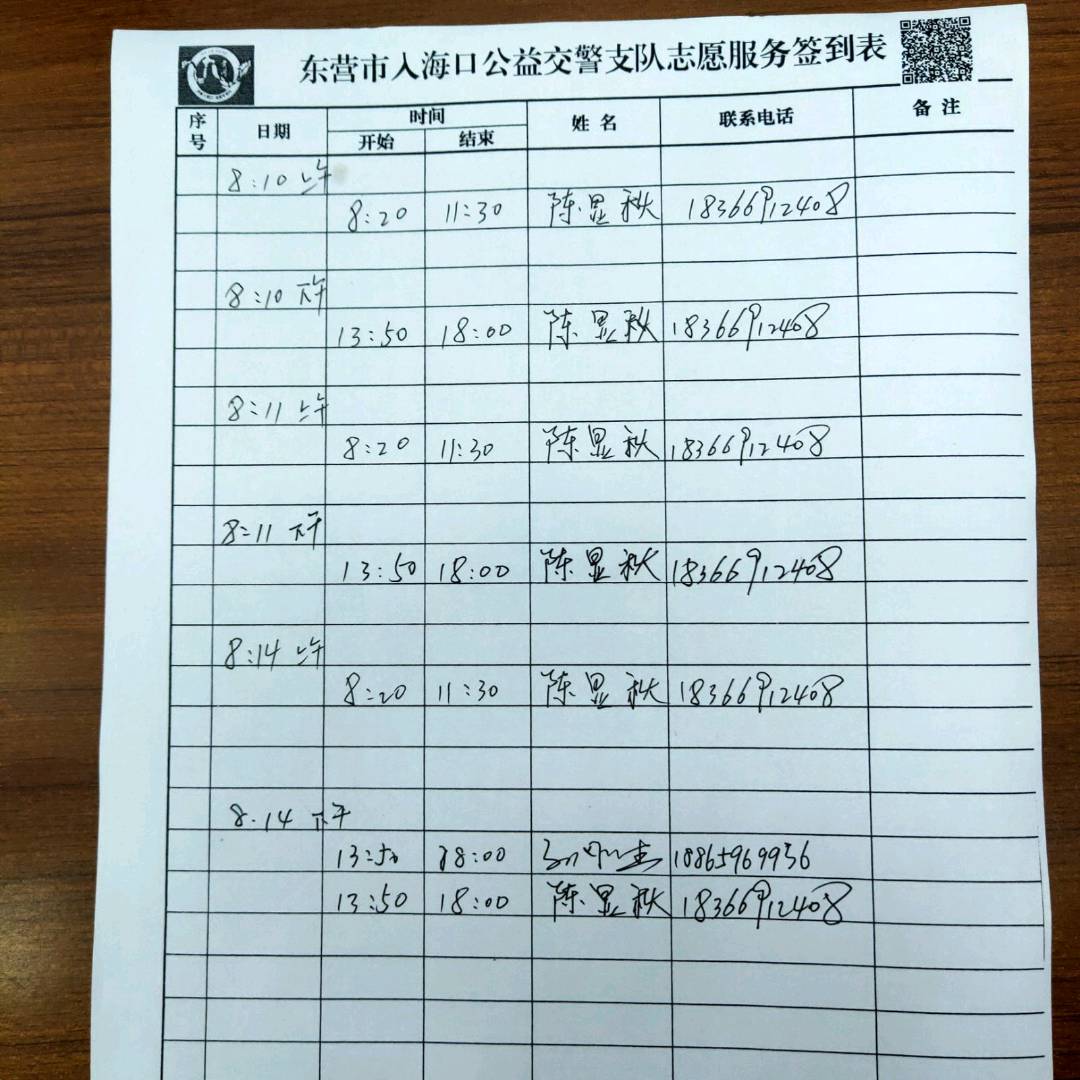 东营市入海口公益交警支队志愿服务签到表
序号 日期 时间 姓名 联系电话 备注
开始 结束
8:10 上午
8:20 11:30 陈显秋 18366912408
8:10 下午
13:50 18:00 陈显秋 18366912408
8:11 上午
8:20 11:30 陈显秋 18366912408
8:11 下午
13:50 18:00 陈显秋 18366912408
8:14 上午
8:20 11:30 陈显秋 18366912408
8.14 下午
13:50 18:00 18865969956
13:50 18:00 陈显秋 18366912408